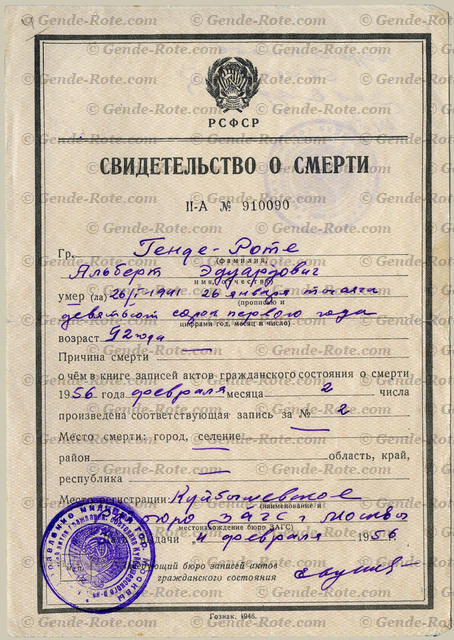 © Gende-Rote.com © Gende-Rote.com © Gende-Rote.com
РСФСР
СВИДЕТЕЛЬСТВО О СМЕРТИ
II-А № 910090
Гр. Генде-Роте
(фамилия,
Альберт Эдуардович
имя, отчество)
умер (ла) 26/I-1941 26 января тысяча
(прописью и
девятьсот сорок первого года
цифрами год, месяц и число)
возраст 92 года
Причина смерти —
о чём в книге записей актов гражданского состояния о смерти
1956 года февраля месяца 2 числа
произведена соответствующая запись за № 2
Место смерти: город, селение —
район — область, край,
республика —
Место регистрации: Куйбышевское
(наименование и
бюро ЗАГС г. Москвы
местонахождение бюро ЗАГС)
дачи 4 февраля 1956
бюро записей актов
гражданского состояния
Гознак. 1946.